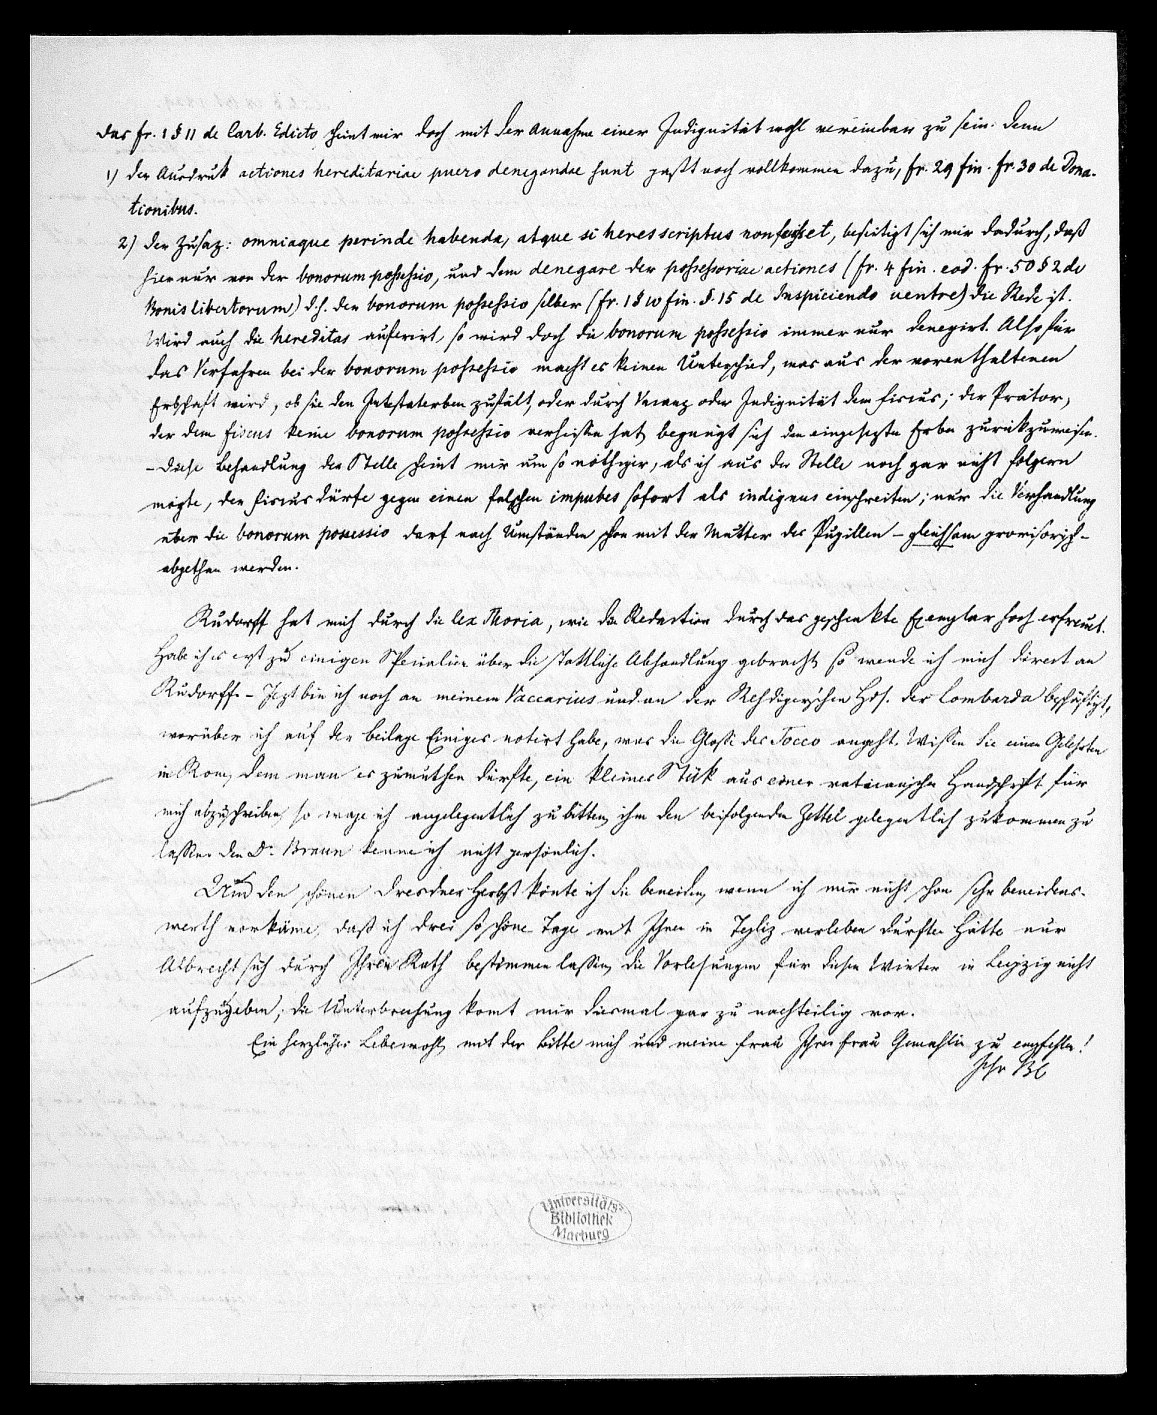 Das fr. 1 § 11 de Carb. Edicto scheint mir doch mit der Annahme einer Indignität wohl vereinbar zu sein. Denn
1) der Ausdruk actiones hereditariae puero denegandae sunt paßt noch vollkommen dazu, fr. 29 fin. fr. 30 de Dona-
tionibus.
2) der Zusaz: omniaque perinde habenda, atque si heres scriptus non fuisset, beseitigt sich mir dadurch, daß
hier nur von der bonorum possessio, und dem denegare der possessoriae actiones (fr. 4 fin. eod. fr. 50 § 2 de
Bonis libertorum) d.h. der bonorum possessio selber (fr. 1 § 10 fin. §. 15 de Inspiciendo ventre) die Rede ist.
Wird auch die hereditas auferirt, so wird doch die bonorum possessio immer nur denegirt. Also für
das Verfahren bei der bonorum possessio macht es keinen Unterschied, was aus der vorenthaltenen
Erbschaft wird, ob sie den Intestaterben zufält, oder durch Vacanz oder Indignität dem fiscus; der Prätor,
der dem fiscus keine bonorum possessio verheißen hat, begnügt sich den eingesezten Erben zurükzuweisen.
– Diese Behandlung der Stelle scheint mir um so nöthiger, als ich aus der Stelle noch gar nicht folgern
mögte, der fiscus dürfe gegen einen falschen impubes sofort als indignus einschreiten; nur die Verhandlung
über die bonorum possessio darf nach Umständen schon mit der Mutter des Pupillen – gleichsam provisorisch –
abgethan werden.
Rudorff hat mich durch die lex Thoria, wie die Redaction durch das geschenkte Exemplar hoch erfreut.
Habe ich es erst zu einigen Specialien über die stattliche Abhandlung gebracht, so wende ich mich direct an
Rudorff. – Jezt bin ich noch an meinem Vaccarius und an der Rehdigerschen Hds. der Lombarda beschäftigt,
worüber ich auf der Beilage Einiges notirt habe, was die Glosse des Tocco angeht. Wissen Sie einen Gelehrten
in Rom, dem man es zumuthen dürfte, ein kleines Stük aus einer vaticanischen Handschrift für
mich abzuschreiben, so wage ich angelegentlich zu bitten, ihm den beifolgenden Zettel gelegentlich zukommen zu
lassen. Den Dr. Braun kenne ich nicht persönlich.
Um den schönen Dresdner Herbst könte ich Sie beneiden, wenn ich mir nicht schon sehr beneidens-
werth vorkäme, daß ich drei so schöne Tage mit Ihnen in Tepliz verleben durfte. Hätte nur
Albrecht sich durch Ihren Rath bestimmen lassen, die Vorlesungen für diesen Winter in Leipzig nicht
aufzugeben; die Unterbrechung komt mir diesmal gar zu nachteilig vor.
Ein herzliches Lebewohl, mit der Bitte mich und meine Frau Ihrer Frau Gemahlin zu empfehlen!
Ihr Bl
Universitäts-
Bibliothek
Marburg